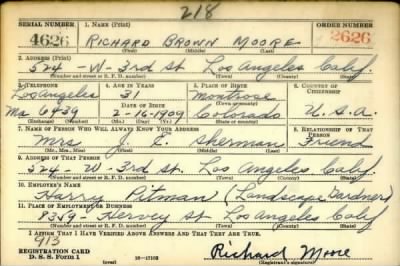 218
SERIAL NUMBER 1. NAME (Print) ORDER NUMBER
4626 RICHARD BROWN MOORE 2626
(First) (Middle) (Last)
2. ADDRESS (Print)
524 - W - 3rd St. Los Angeles Calif.
(Number and street or R. F. D. number) (Town) (County) (State)
3. TELEPHONE 4. AGE IN YEARS 5. PLACE OF BIRTH 6. COUNTRY OF CITIZENSHIP
Los Angeles 31 Montrose
DATE OF BIRTH (Town or county)
Ma 6439 2-16-1909 Colorado U.S.A.
7. NAME OF PERSON WHO WILL ALWAYS KNOW YOUR ADDRESS 8. RELATIONSHIP OF THAT PERSON
Mrs J. E. Sherman Friend
(Mr., Mrs., Miss) (First) (Middle) (Last)
9. ADDRESS OF THAT PERSON
524 - W - 3rd St. Los Angeles Calif.
(Number and street or R. F. D. number) (Town) (County) (State)
10. EMPLOYER'S NAME
Harry (Landscape Gardner)
11. PLACE OF EMPLOYMENT OR BUSINESS
8359 - Hervey St Los Angeles Calif
(Number and street or R. F. D. number) (Town) (County) (State)
I AFFIRM THAT I HAVE VERIFIED ABOVE ANSWERS AND THAT THEY ARE TRUE.
913
REGISTRATION CARD
D. S. S. Form 1 Richard Moore
(Registrant's signature)